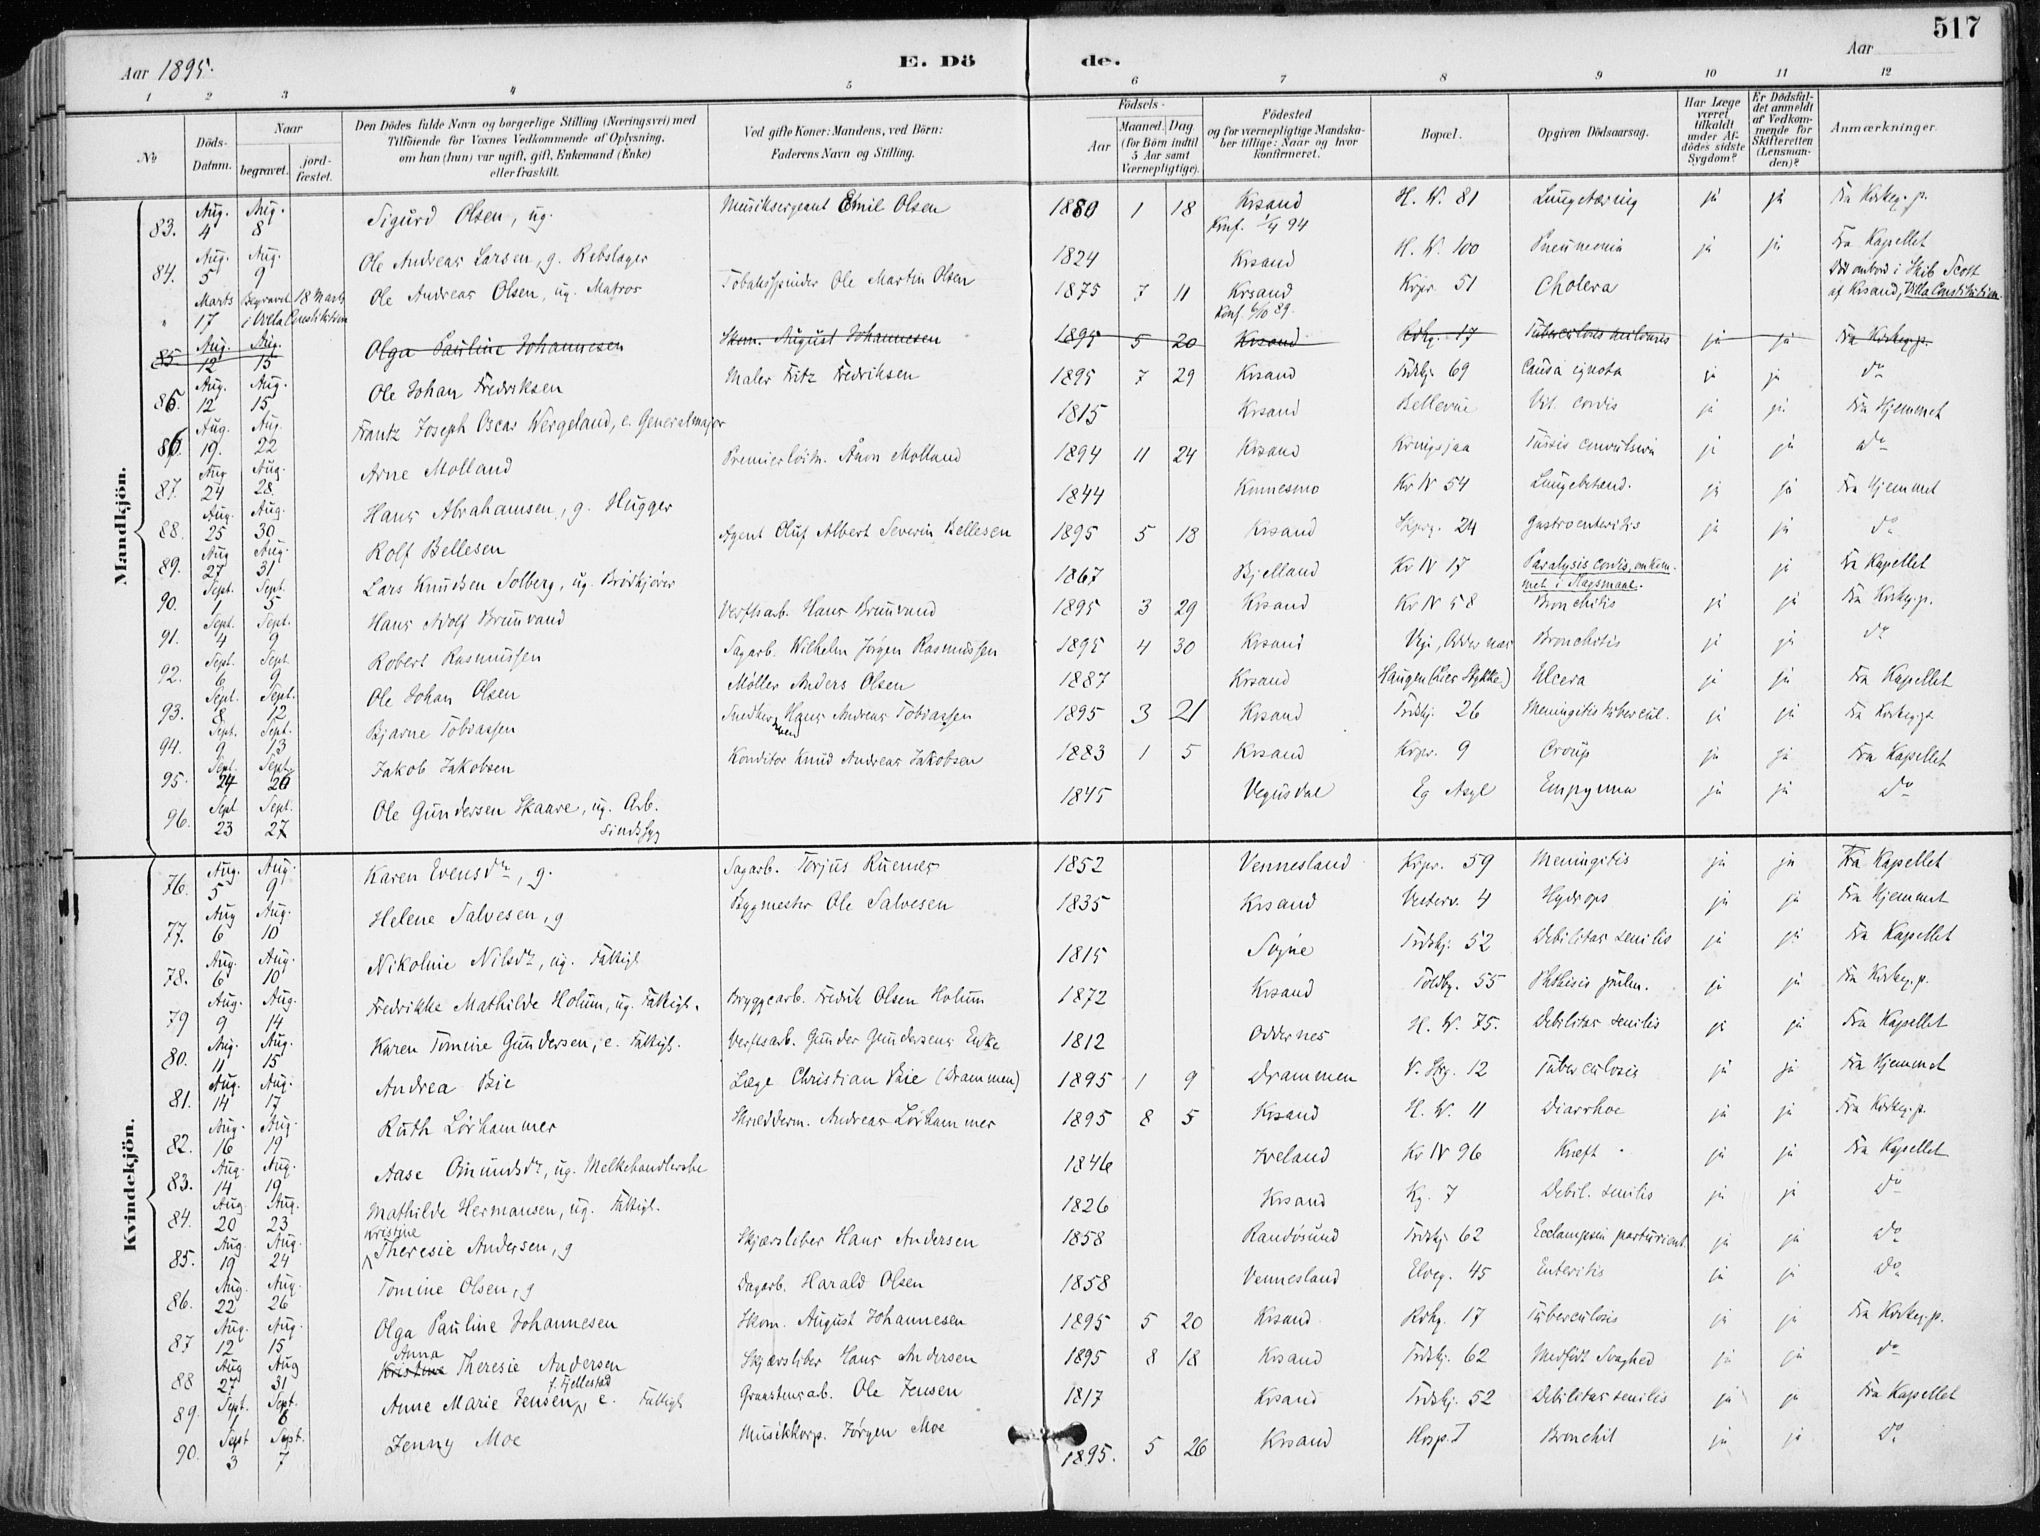 517
Aar 1895.
E. Dö de.
Aar
1 2 3 4 5 6 7 8 9 10 11 12
No
Döds-Datum.
Naar
begravet.
jord-fæstet.
Den Dödes fulde Navn og borgerlige Stilling (Næringsvei) med
Tilföiende for Voxnes Vedkommende af Oplysning,
om han (hun) var ugift, gift, Enkemand (Enke)
eller fraskilt.
Ved gifte Koner: Mandens, ved Börn:
Faderens Navn og Stilling.
Födsels-
Aar
Maaned. Dag
(for Börn indtil
5 Aar samt
Værnepligtige).
Födested
og for værnepligtige Mandska-
ber tillige: Naar og hvor
konfirmeret.
Bopæl.
Opgiven Dödsaarsag.
Har Læge
været
tilkaldt
under Af-
dödes sidste
Sygdom?
Er Dödsfal-
det anmeldt
af Vedkom-
mende for
Skifteretten
(Lensman-
den)?
Anmærkninger.
Mandkjön.
83. Aug. 4 Aug. 8 Sigurd Olsen, ug. Musiksergeant Emil Olsen 1880 1 18 Krsand Konf. 1/4 94 H. W. 81 Lungetæring ja ja Fra Kirkeg.p.
84. Aug. 5 Aug. 9 Ole Andreas Larsen, g. Rebslager 1824 Krsand H. W. 100 Pneumonia ja ja Fra Kapellet
" Marts 17 Begravet i Villa Constitution 18 Marts Ole Andreas Olsen, ug. Matros Tobaksspinder Ole Martin Olsen 1875 7 11 Krsand Konf. 6/10 89. Krpr. 51 Cholera Död ombord i Skib Scott af Krsand, Villa Constitution.
85 Aug. 12 Aug. 15 Olga Pauline Johannesen Skom. August Johannesen 1895 5 20 Krsand Rdhg. 17 Tuberculosis ja ja Fra Kirkeg.p.
85. Aug. 12 Aug. 15 Ole Johan Fredriksen Maler Fritz Fredriksen 1895 7 29 Krsand Trdskj. 69 Causa ignota ja ja do
86. Aug. 19. Aug. 22 Frantz Joseph Oscar Wergeland, e. Generalmajor 1815 Krsand Bellevue Vit. cordis ja ja Fra Hjemmet
87. Aug 24 Aug. 28. Arne Molland Premierlöitn. Aron Molland 1894 11 24 Krsand Kongsjaa Tussis convulsiva ja ja do
88. Aug. 25 Aug. 30 Hans Abrahamsen, g. Hugger 1844 Kinnesmo Kr IV 54 Lungebetænd. ja ja Fra Hjemmet
89. Aug 27 Aug. 31 Rolf Bellesen Agent Oluf Albert Severin Bellesen 1895 5 18 Krsand 24 Gastroenteritis ja ja do
90. Sept. 1 Sept. 5 Lars Knudsen Solberg, ug. Brödkjörer 1867 Bjelland Kr IV 17 Paralysis cordis, omkom-
met i Slagsmaal. ja Fra Kapellet
91. Sept. 4 Sept. 9 Hans Adolf Bruuvand Verftsarb. Hans Bruuvand 1895 3 29 Krsand Kr IV 58 Bronchitis ja ja Fra Kirkeg.p.
92. Sept. 6 Sept. 9 Robert Rasmussen Sagarb. Wilhelm Jörgen Rasmussen 1895 4 30 Krsand Veji, Oddernæs Bronchitis ja ja do
93. Sept. 8 Sept. 12 Ole Johan Olsen Möller Anders Olsen 1887 Krsand Haugen (Liers Stykke) Ulcera ja ja Fra Kapellet
94. Sept. 9 Sept. 13 Bjarne Tobiassen Snedker Hans Andreas Tobiassen 1895 3 21 Krsand Trdskj. 26 Meningitis tubercul. ja ja Fra Kirkeg.p.
95. Sept. 24 Sept. 26 Jakob Jakobsen Konditor Knud Andreas Jakobsen 1883 1 5 Krsand Krpr. 9 Croup ja ja Fra Kapellet
96. Sept 23 Sept. 27 Ole Gundersen Skaare, ug. Arb. sindssyg 1845 Vegusdal Eg Asyl Empyema ja ja do
Kvindekjön.
76. Aug. 5 Aug. 9 Karen Evensdr, g. Sagarb. Torjus 1852 Vennesland Krpr. 59 Meningitis ja ja Fra Kapellet
77. Aug 6 Aug. 10 Helene Salvesen, g Bygmester Ole Salvesen 1835 Krsand Vesterv. 4 Hydrops ja ja Fra Hjemmet
78. Aug. 6 Aug. 10 Nikoline Nilsdr, ug. Fattigl 1815 Sogne Trdskj. 52 Debilitas senilis ja ja Fra Kapellet
79 Aug. 9 Aug. 14 Fredrikke Mathilde Holum, ug. Fattigl. Bryggearb. Fredrik Olsen Holum 1872 Krsand Toldbg. 55 Phthisis pulm. ja ja Fra Kirkeg.p.
80. Aug. 11 Aug. 15 Karen Tomine Gundersen, e. Fattigl. Verftsarb. Gunder Gundersens Enke 1812 Oddernes H. W. 75. Debilitas senilis ja ja Fra Kapellet
81. Aug. 14 Aug. 17 Andrea Bie Læge Christian Bie (Drammen) 1895 1 9 Drammen V. Stg. 12 Tuberculosis ja ja Fra Hjemmet
82. Aug. 16 Aug. 19 Ruth Lörhammer Skrædderm. Andreas Lörhammer 1895 8 5 Krsand H. W. 11 Diarrhoe ja ja Fra Kirkeg.p.
83. Aug. 14 Aug. 19 Aase Omundsdr, ug. Melkehandlerske 1846 Iveland Kr IV 96 Kræft ja ja Fra Kapellet
84. Aug 20 Aug. 23 Mathilde Hermansen, ug. Fattigl. 1826 Krsand Kg. 7 Debil. senilis ja ja do
85. Aug. 19 Aug. 24 Kristine Theresie Andersen, g Skjærsliber Hans Andersen 1858 Randösund Trdskj. 62 Ecclampsia parturient. ja ja do
86. Aug. 22 Aug. 26 Tomine Olsen, g Dagarb. Harald Olsen 1858 Vennesland Elveg. 45 Enteritis ja ja do
87 Aug. 12 Aug. 15 Olga Pauline Johannesen Skom. August Johannesen 1895 5 20 Krsand Rdhg. 17 Tuberculosis ja ja Fra Kirkeg.p.
88 Aug 27 Aug 31 Kristine Anna Theresie Andersen Skjærsliber Hans Andersen 1895 8 18 Krsand Trdskj. 62 Medfödt Svaghed ja ja do
89. Sept. 1 Sept. 6 Anne Marie Jensen, f. Fjellestad e. Fattigl Graastensarb. Ole Jensen 1817 Krsand Trdskj. 52 Debilitas senilis ja ja Fra Kapellet
90. Sept 3 Sept. 7 Jenny Moe Musikkorp. Jörgen Moe 1895. 5 26 Krsand Hosp. I Bronchit ja ja do